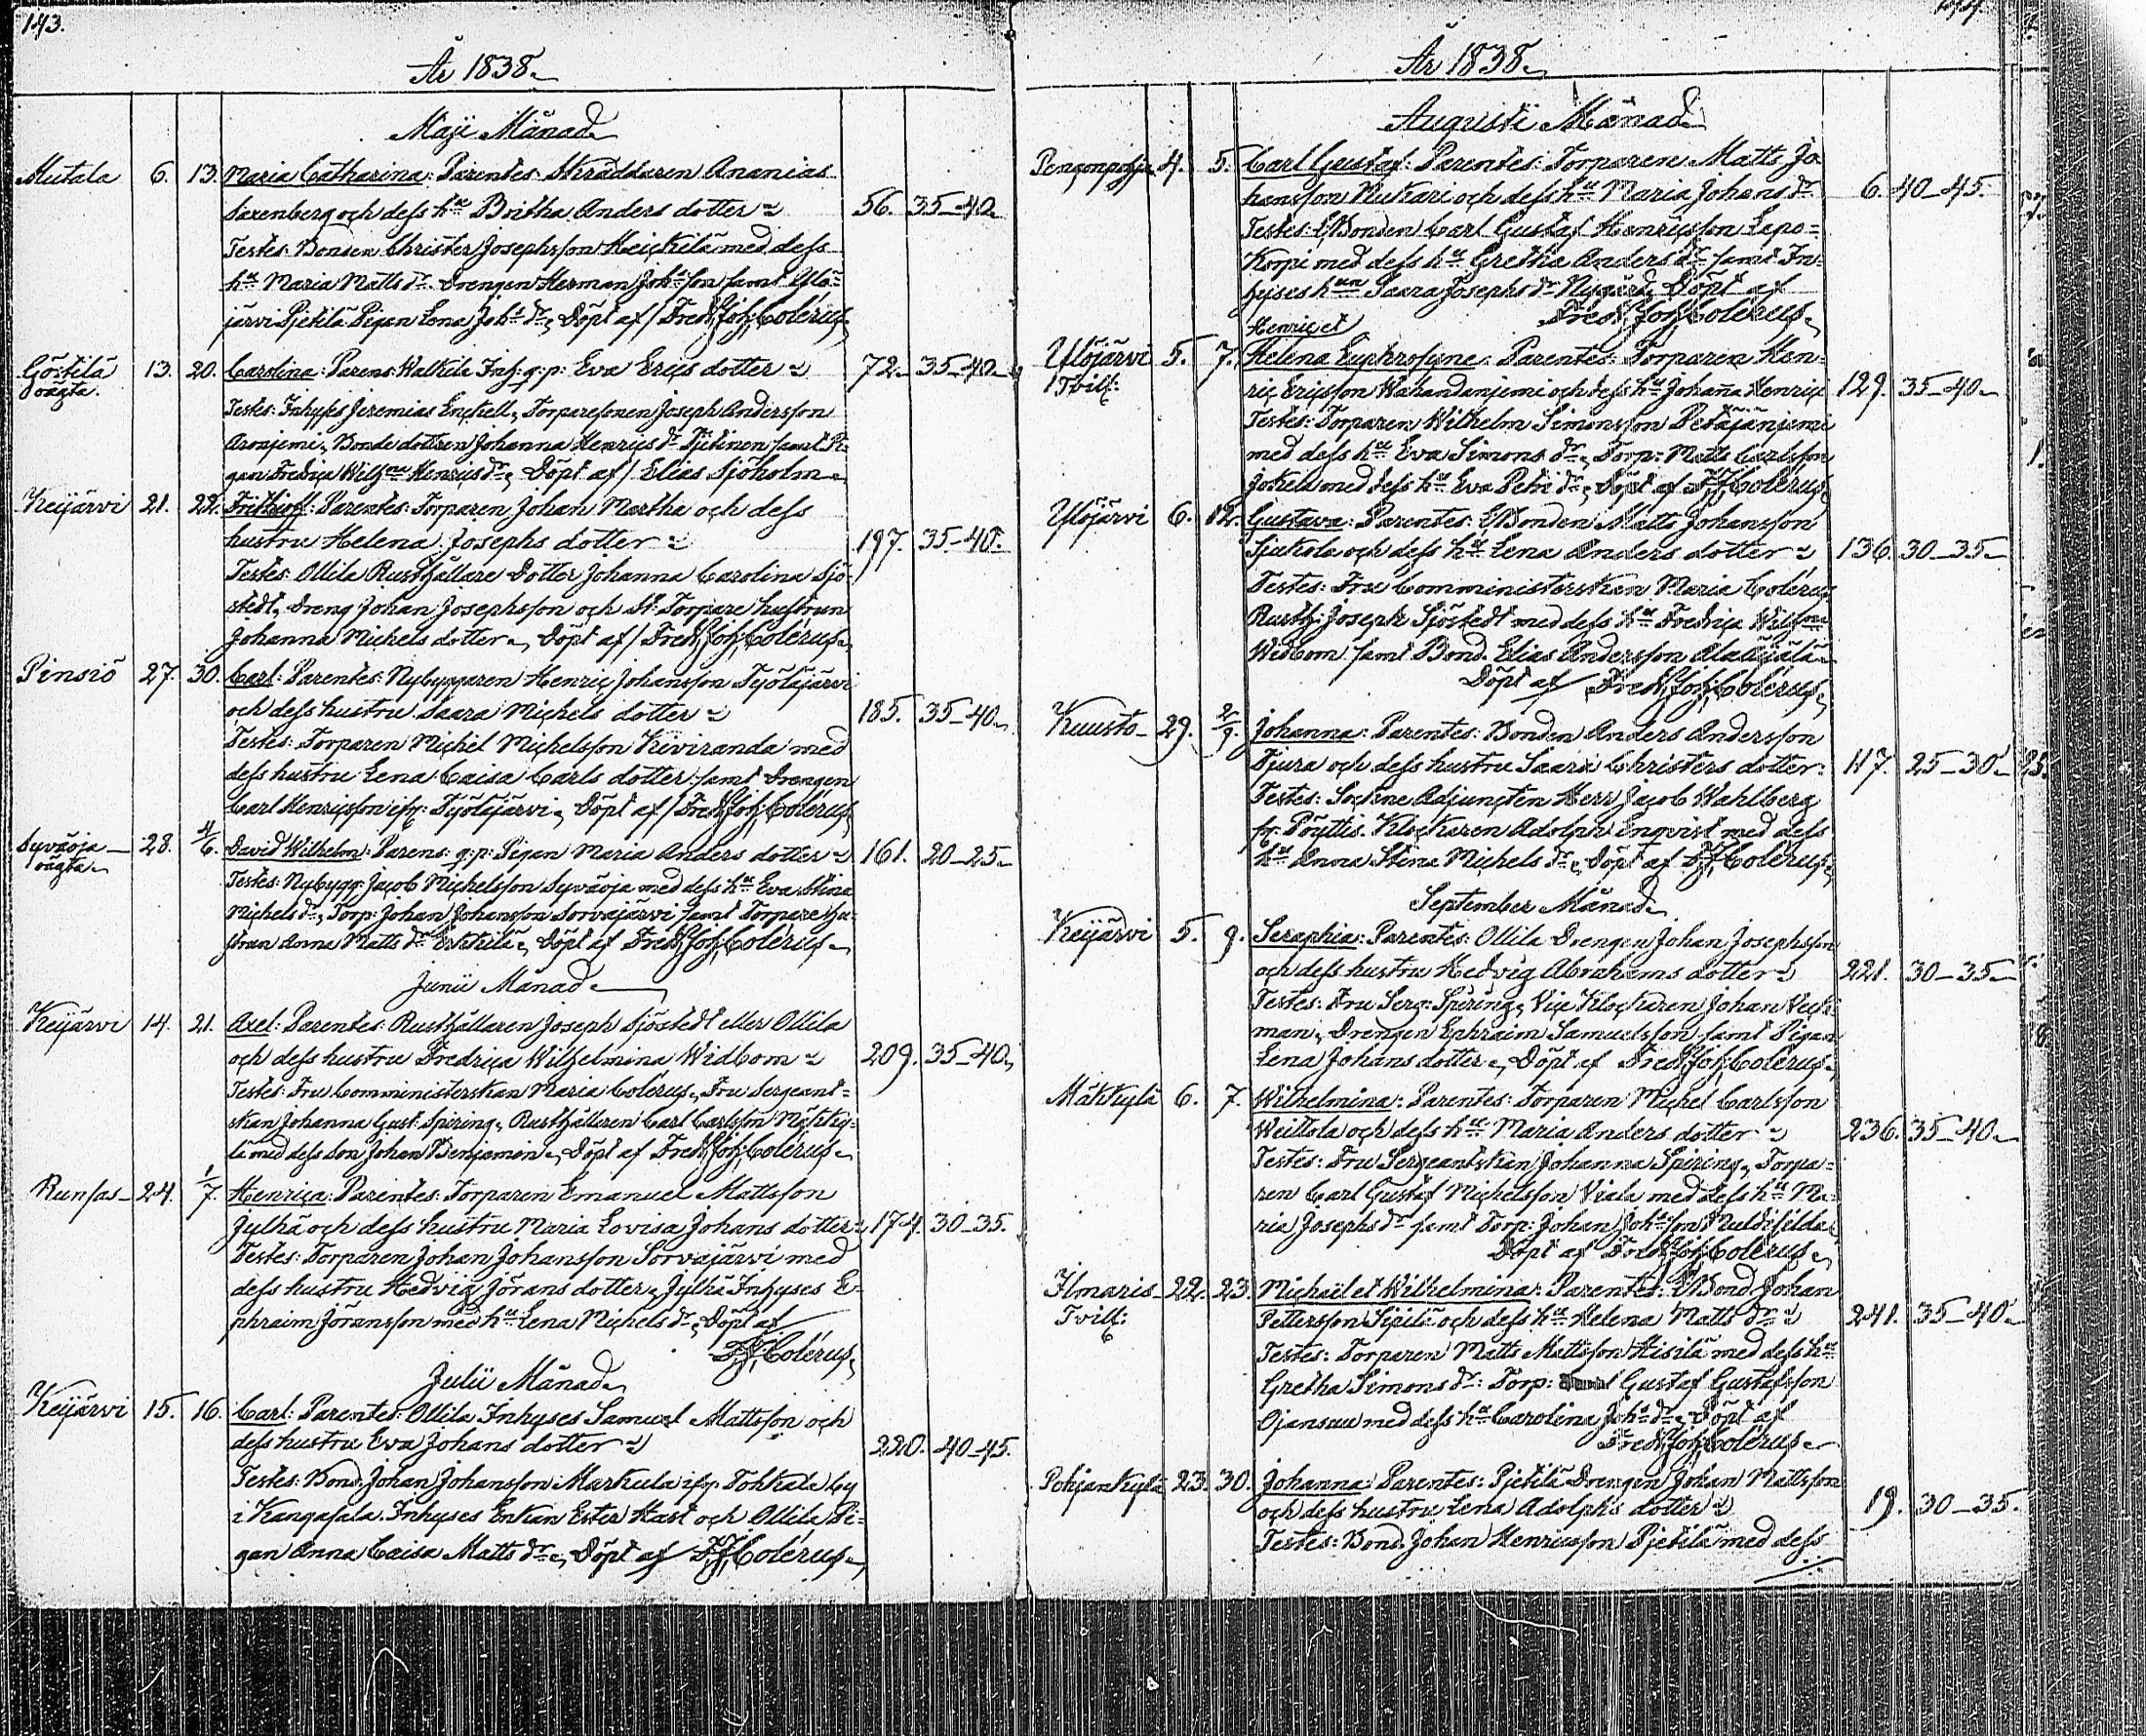 143.
År 1838.
Maji Månad.
Mutala 6. 13. Maria Catharina: Parentes: Skräddaren Ananias
Saxenberg och dess hu Britha Anders dotter 56. 35-40.
Testes: Bonden Christer Josephsson Heickilä med dess
hu Maria Matts dr. Drengen Herman Johsson samt Ylö-
järvi Pjetilä Pigan Lena Johs dr, Döpt af / Fredr. Joh. Colérus.
Göttilä 13. 20. Carolina: Parens: Inh: q: p: Eva Erics dotter 72. 35-40.
oägta.
Testes: Inhyses Jeremias Enckell, Torparesonen Joseph Andersson
Aronjemi, Bonde dottren Johanna Henrics dr Pjetinen samt Pi-
gan Fredrica Henrics dr, Döpt af / Elias Sjöholm.
Keijärvi 21. 22. Frithioff: Parentes: Torparen Johan Martha och dess
hustru Helena Josephs dotter 197. 35-40.
Testes: Ollila Rusthållare Dotter Johanna Carolina Sjö-
stedt, Dreng Johan Josephsson och St. Torpare hustrun
Johanna Michels dotter, Döpt af / Fredr. Joh. Colérus.
Pinsiö 27. 30. Carl: Parentes: Nybyggaren Henric Johansson Työläjärvi
och dess hustru Saara Michels dotter 185. 35-40.
Testes: Torparen Michel Michelsson Kiviranda med
dess hustru Lena Caisa Carls dotter samt Drengen
Carl Henricsson ifr: Työläjärvi, Döpt af / Fredr. Joh. Colérus.
Syväoja 28. 4/6. David Wilhelm: Parens: q: p: Pigan Maria Anders dotter 161. 20-25.
oägta.
Testes: Nybygg: Jacob Michelsson Syväoja med dess hu Eva Stina
Michels dr, Torp: Johan Johansson Sorvajärvi samt Torpare hu-
strun Anna Matts dr Erkkilä, Döpt af Fredr. Joh. Colérus.
Junii Månad.
Keijärvi 14. 21. Axel: Parentes: Rusthållaren Joseph Sjöstedt eller Ollila
och dess hustru Fredrica Wilhelmina Widbom 209. 35-40.
Testes: Fru Comministerskan Maria Colérus, Fru Sergeant-
skan Johanna Gust: Spiring, Rusthållaren Carl Carlsson Mäkky-
lä med dess son Johan Benjamin, Döpt af Fredr. Joh. Colérus.
Runsas 24. 1/7. Henrica: Parentes: Torparen Emanuel Mattsson
Jylhä och dess hustru Maria Lovisa Johans dotter 174. 30-35.
Testes: Torparen Johan Johansson Sorvajärvi med
dess hustru Hedvig Jörans dotter, Jylhä Inhyses E-
phraim Jöransson med hu Lena Michels dr, Döpt af
F. J. Colérus.
Julii Månad.
Keijärvi 15. 16. Carl: Parentes: Ollila Inhyses Samuel Mattsson och
dess hustru Eva Johans dotter 220. 40-45.
Testes: Bond. Johan Johansson Markula ifr Tohkala by
i Kangasala, Inhyses Enkan Ester Hast och Ollila Pi-
gan Anna Caisa Matts dr, Döpt af F. J. Colérus.
År 1838.
Augusti Månad.
Pengonpohja 4. 5. Carl Gustaf: Parentes: Torparen Matts Jo-
hansson Nukari och dess hu Maria Johans dr 6. 40-45.
Testes: Bonden Carl Gustaf Henricsson Lepo-
korpi med dess hu Gretha Anders dr samt In-
hyses hun Saara Josephs dr Nygård, Döpt af
Fredr. Joh. Colérus.
Henric et
Ylöjärvi 5. 7. Helena Euphrosyne: Parentes: Torparen Hen-
Tvill:
ric Ericsson Wahandanjemi och dess hu Johana Henric 129. 35-40.
Testes: Torparen Wilhelm Simonsson Petäjänjemi
med dess hu Eva Simons dr, Torp: Matts Carlsson
Jokela med dess hu Eva Petri dr, Döpt af F. J. Colérus.
Ylöjärvi 6. 12. Gustava: Parentes: Bonden Matts Johansson
Sjukola och dess hu Lena Anders dotter 136. 30-35.
Testes: Fru Comministerskan Maria Colérus
Rusth: Joseph Sjöstedt med dess hu Fredrica Wilhna
Widbom samt Bond. Elias Andersson Alaäijälä.
Döpt af Fredr. Joh. Colérus.
Kuusto 29. 2/9. Johanna: Parentes: Bonden Anders Andersson
Tjura och dess hustru Saara Christers dotter 117. 25-30.
Testes: Sockne Adjuncten Herr Jacob Wahlberg
fr: Pöyttis. Klockaren Adolph Enqvist med dess
hu Anna Stina Michels dr, Döpt af F. J. Colérus.
September Månad.
Keijärvi 5. 9. Seraphia: Parentes: Ollila Drengen Johan Josephsson
och dess hustru Hedvig Abrahams dotter 221. 30-35.
Testes: Fru Serg: Spiring, Vice Klockaren Johan Veck-
man, Drengen Ephraim Samuelsson samt Pigan
Lena Johans dotter, Döpt af Fredr. Joh. Colérus.
Mäkkylä 6. 7. Wilhelmina: Parentes: Torparen Michel Carlsson
Weittola och dess hu Maria Anders dotter 236. 35-40.
Testes: Fru Sergeantskan Johanna Spiring, Torpa-
ren Carl Gustaf Michelsson Viala med dess hu Ma-
ria Josephs dr samt Torp: Johan Johsson
Döpt af Fredr. Joh. Colérus.
Ilmaris 22. 23. Michaël et Wilhelmina: Parentes: Bond. Johan
Tvill:
Pettersson Sipilä och dess hu Helena Matts dr 241. 35-40.
Testes: Torparen Matts Mattsson Hisilä med dess hu
Gretha Simons dr: Torp: Gustaf Gustafsson
Ojansuu med dess hu Carolina Johs dr, Döpt af
Fredr. Joh. Colérus.
Pohjankylä 23. 30. Johanna: Parentes: Pjetilä Drengen Johan Mattsson
och dess hustru Lena Adolphs dotter 19. 30-35.
Testes: Bond. Johan Henricsson Pjetilä med dess